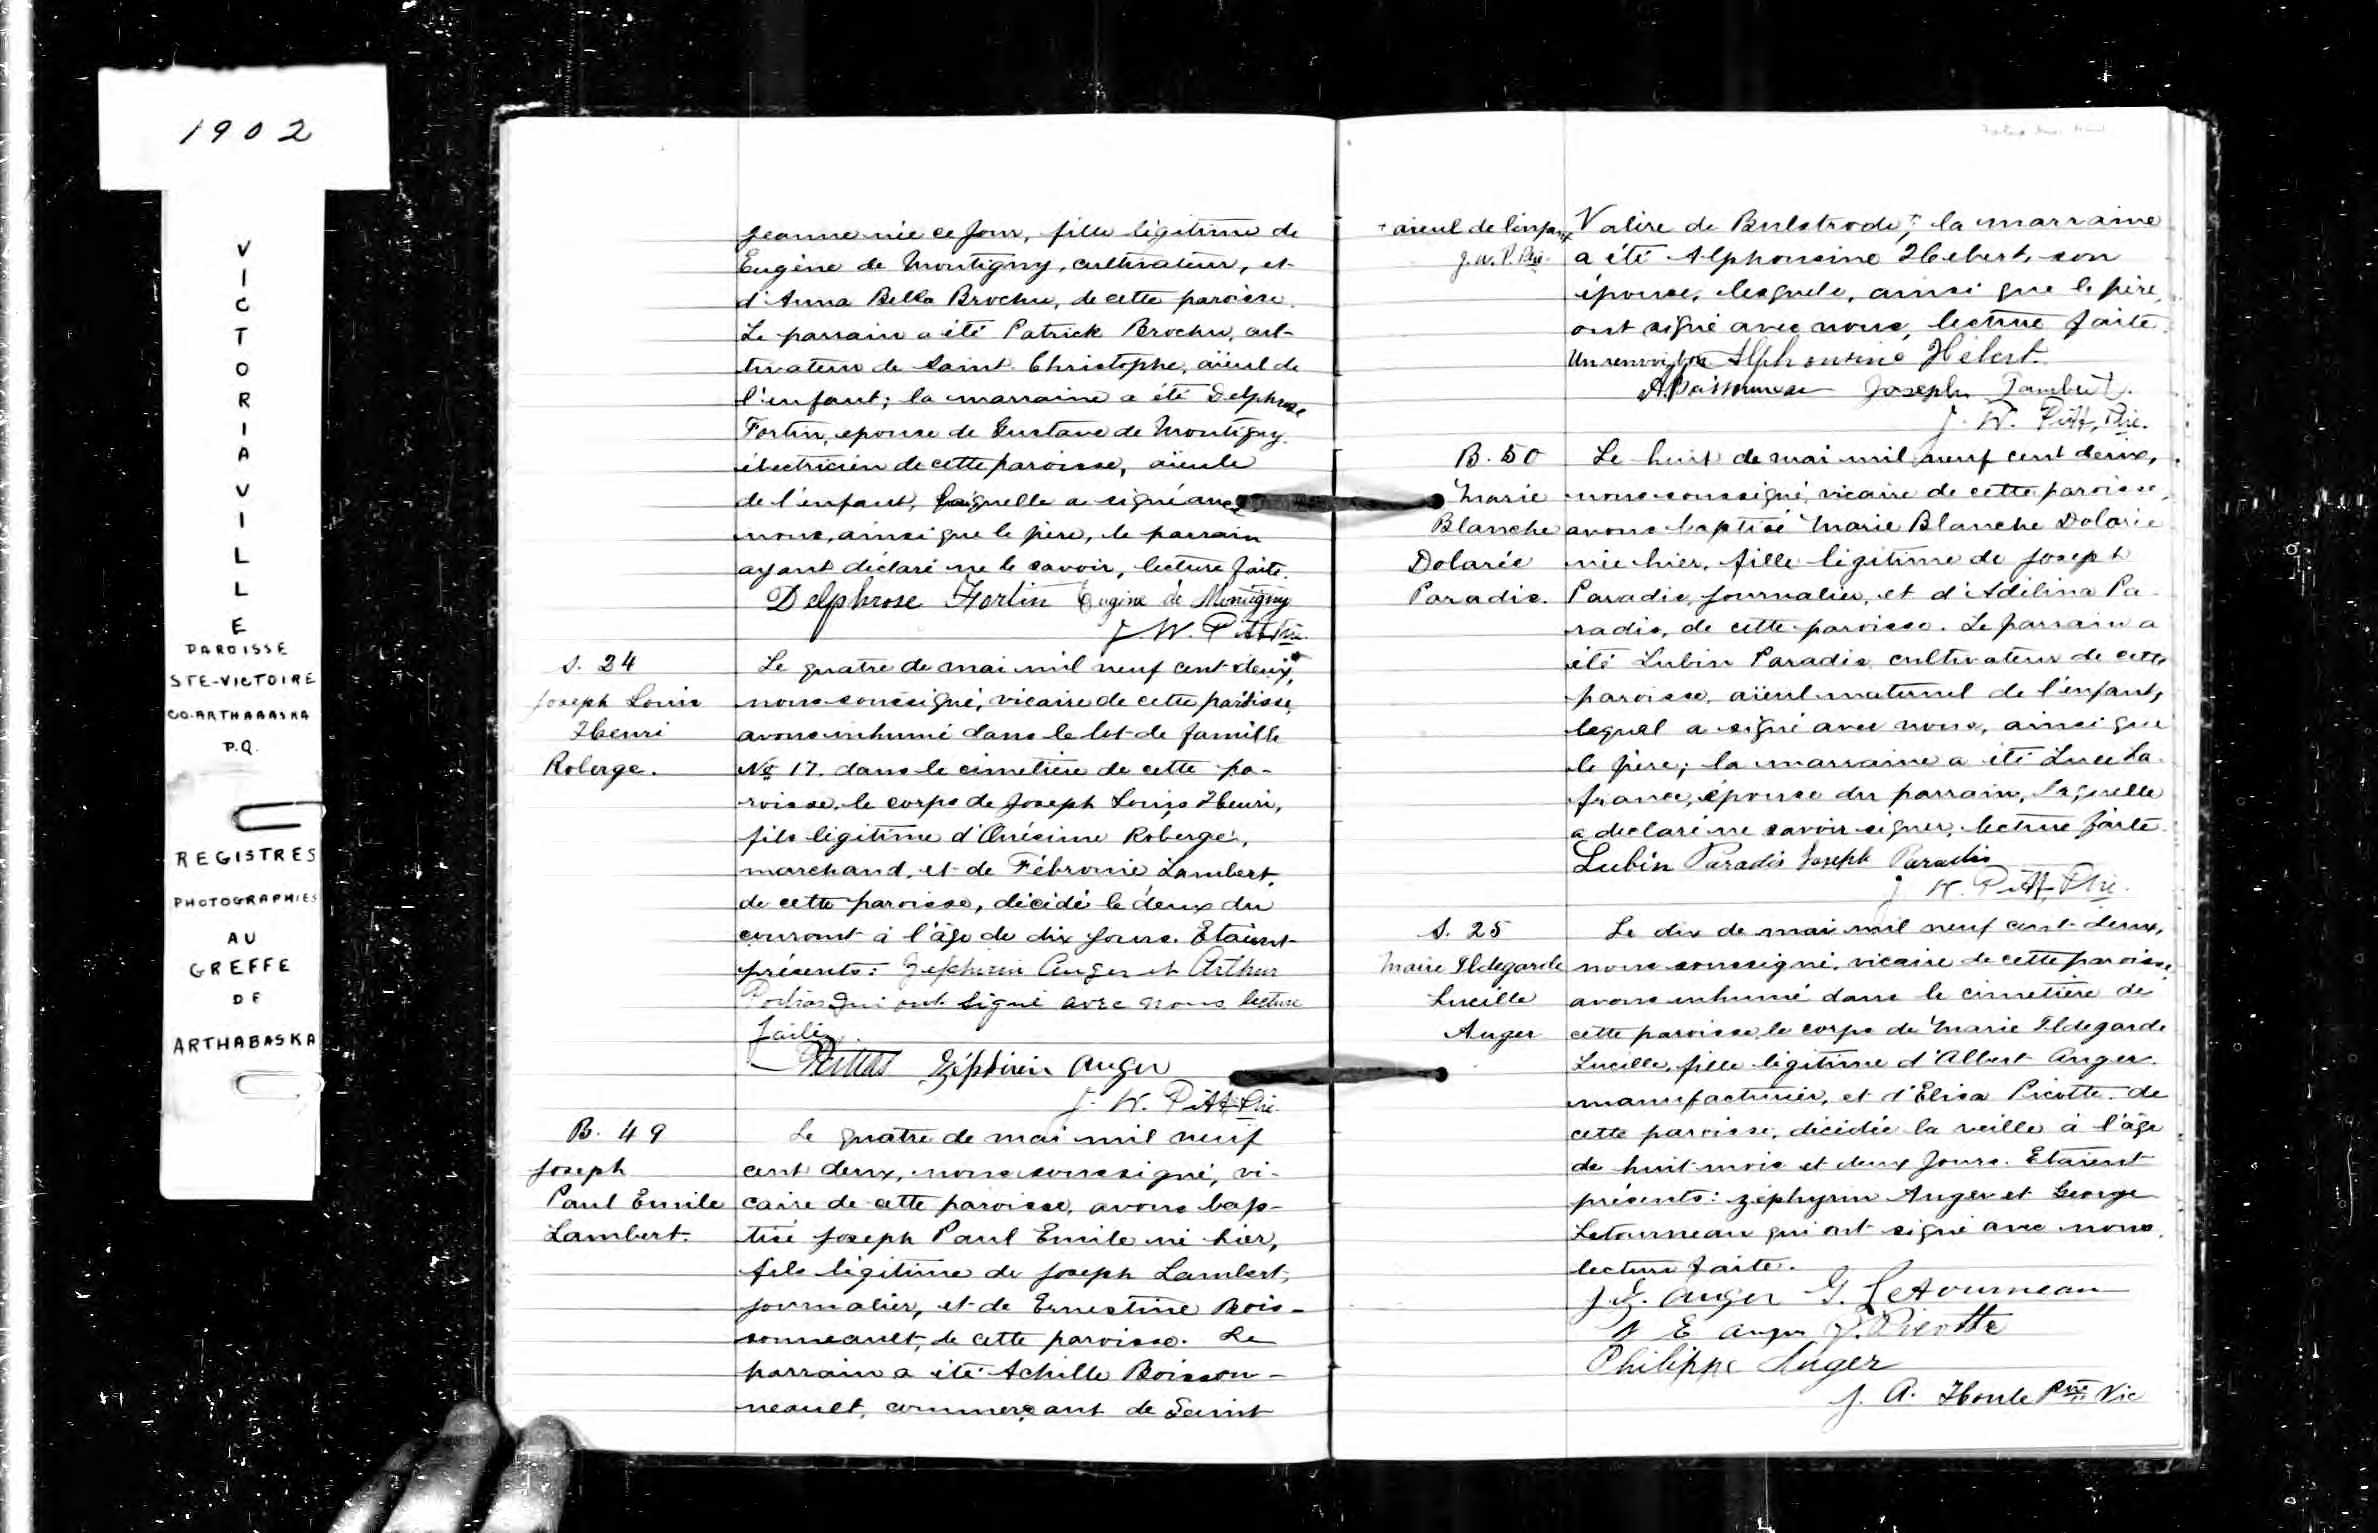 1902
VICTORIAVILLE
PAROISSE
STE-VICTOIRE
CO-ARTHABASKA
P.Q.
REGISTRES
PHOTOGRAPHIES
AU
GREFFE
DE
ARTHABASKA
Jeanne née ce jour, fille légitime de
Eugène de Montigny, cultivateur, et
d'Anna Bella Brochu, de cette paroisse.
Le parrain a été Patrick Brochu, cul-
tivateur de Saint Christophe, aïeul de
l'enfant; la marraine a été Delphrose
Fortin, epouse de Gustave de Montigny.
électricien de cette paroisse, aïeule
de l'enfant, laquelle a signé avec
nous, ainsi que le père, le parrain
ayant déclaré ne le savoir, lecture faite.
Delphrose Fortin Eugène de Montigny
J. W. Pitt Ptre.
S. 24
Joseph Louis
Henri
Roberge.
Le quatre de mai mil neuf cent deux,
nous soussigné, vicaire de cette paroisse,
avons inhumé dans le lot de famille
No 17. dans le cimetière de cette pa-
roisse, le corps de Joseph Louis Henri,
fils légitime d'Onésime Roberge,
marchand, et de Fébronie Lambert,
de cette paroisse, décédé le deux du
courant à l'âge de dix jours. Etaient
présents: Zephirin Auger et Arthur
Poitras qui ont signé avec nous lecture
faite.
Zéphirin Auger
J. W. Pitt Ptre.
B. 49
Joseph
Paul Emile
Lambert.
Le quatre de mai mil neuf
cent deux, nous soussigné, vi-
caire de cette paroisse, avons bap-
tisé Joseph Paul Emile né hier,
fils légitime de Joseph Lambert,
journalier, et de Ernestine Bois-
sonneault, de cette paroisse. Le
parrain a été Achille Boisson-
neault, commerçant de Saint
+ aïeul de l'enfant
J. W. P. Ptre.
Valère de Bulstrode + la marraine
a été Alphonsine Hebert, son
épouse, lesquels, ainsi que le père,
ont signé avec nous, lecture faite.
Un renvoi bon Alphonsine Hébert.
Joseph Lambert.
J. W. Pitt, Ptre.
B. 50
Marie
Blanche
Dolarée
Paradis.
Le huit de mai mil neuf cent deux,
nous soussigné, vicaire de cette paroisse,
avons baptisé Marie Blanche Dolarée
née hier, fille légitime de Joseph
Paradis, journalier, et d'Adélina Pa-
radis, de cette paroisse. Le parrain a
été Lubin Paradis, cultivateur de cette
paroisse, aïeul maternel de l'enfant,
lequel a signé avec nous, ainsi que
le père; la marraine a été Luce La-
france, épouse du parrain, laquelle
a déclaré ne savoir signer, lecture faite.
Lubin Paradis Joseph Paradis
J. W. Pitt, Ptre.
S. 25
Marie Ildegarde
Lucille
Auger
Le dix de mai mil neuf cent deux,
nous soussigné, vicaire de cette paroisse,
avons inhumé dans le cimetière de
cette paroisse, le corps de Marie Ildegarde
Lucille, fille légitime d'Albert Auger.
manufacturier, et d'Elisa Picotte, de
cette paroisse, décédée la veille à l'âge
de huit mois et deux jours. Etaient
présents: Zéphyrin Auger et George
Letourneau qui ont signé avec nous,
lecture faite.
J. Z. Auger G. Letourneau
E Auger J. Picotte
Philippe Auger
J. A. Houle Ptre Vic